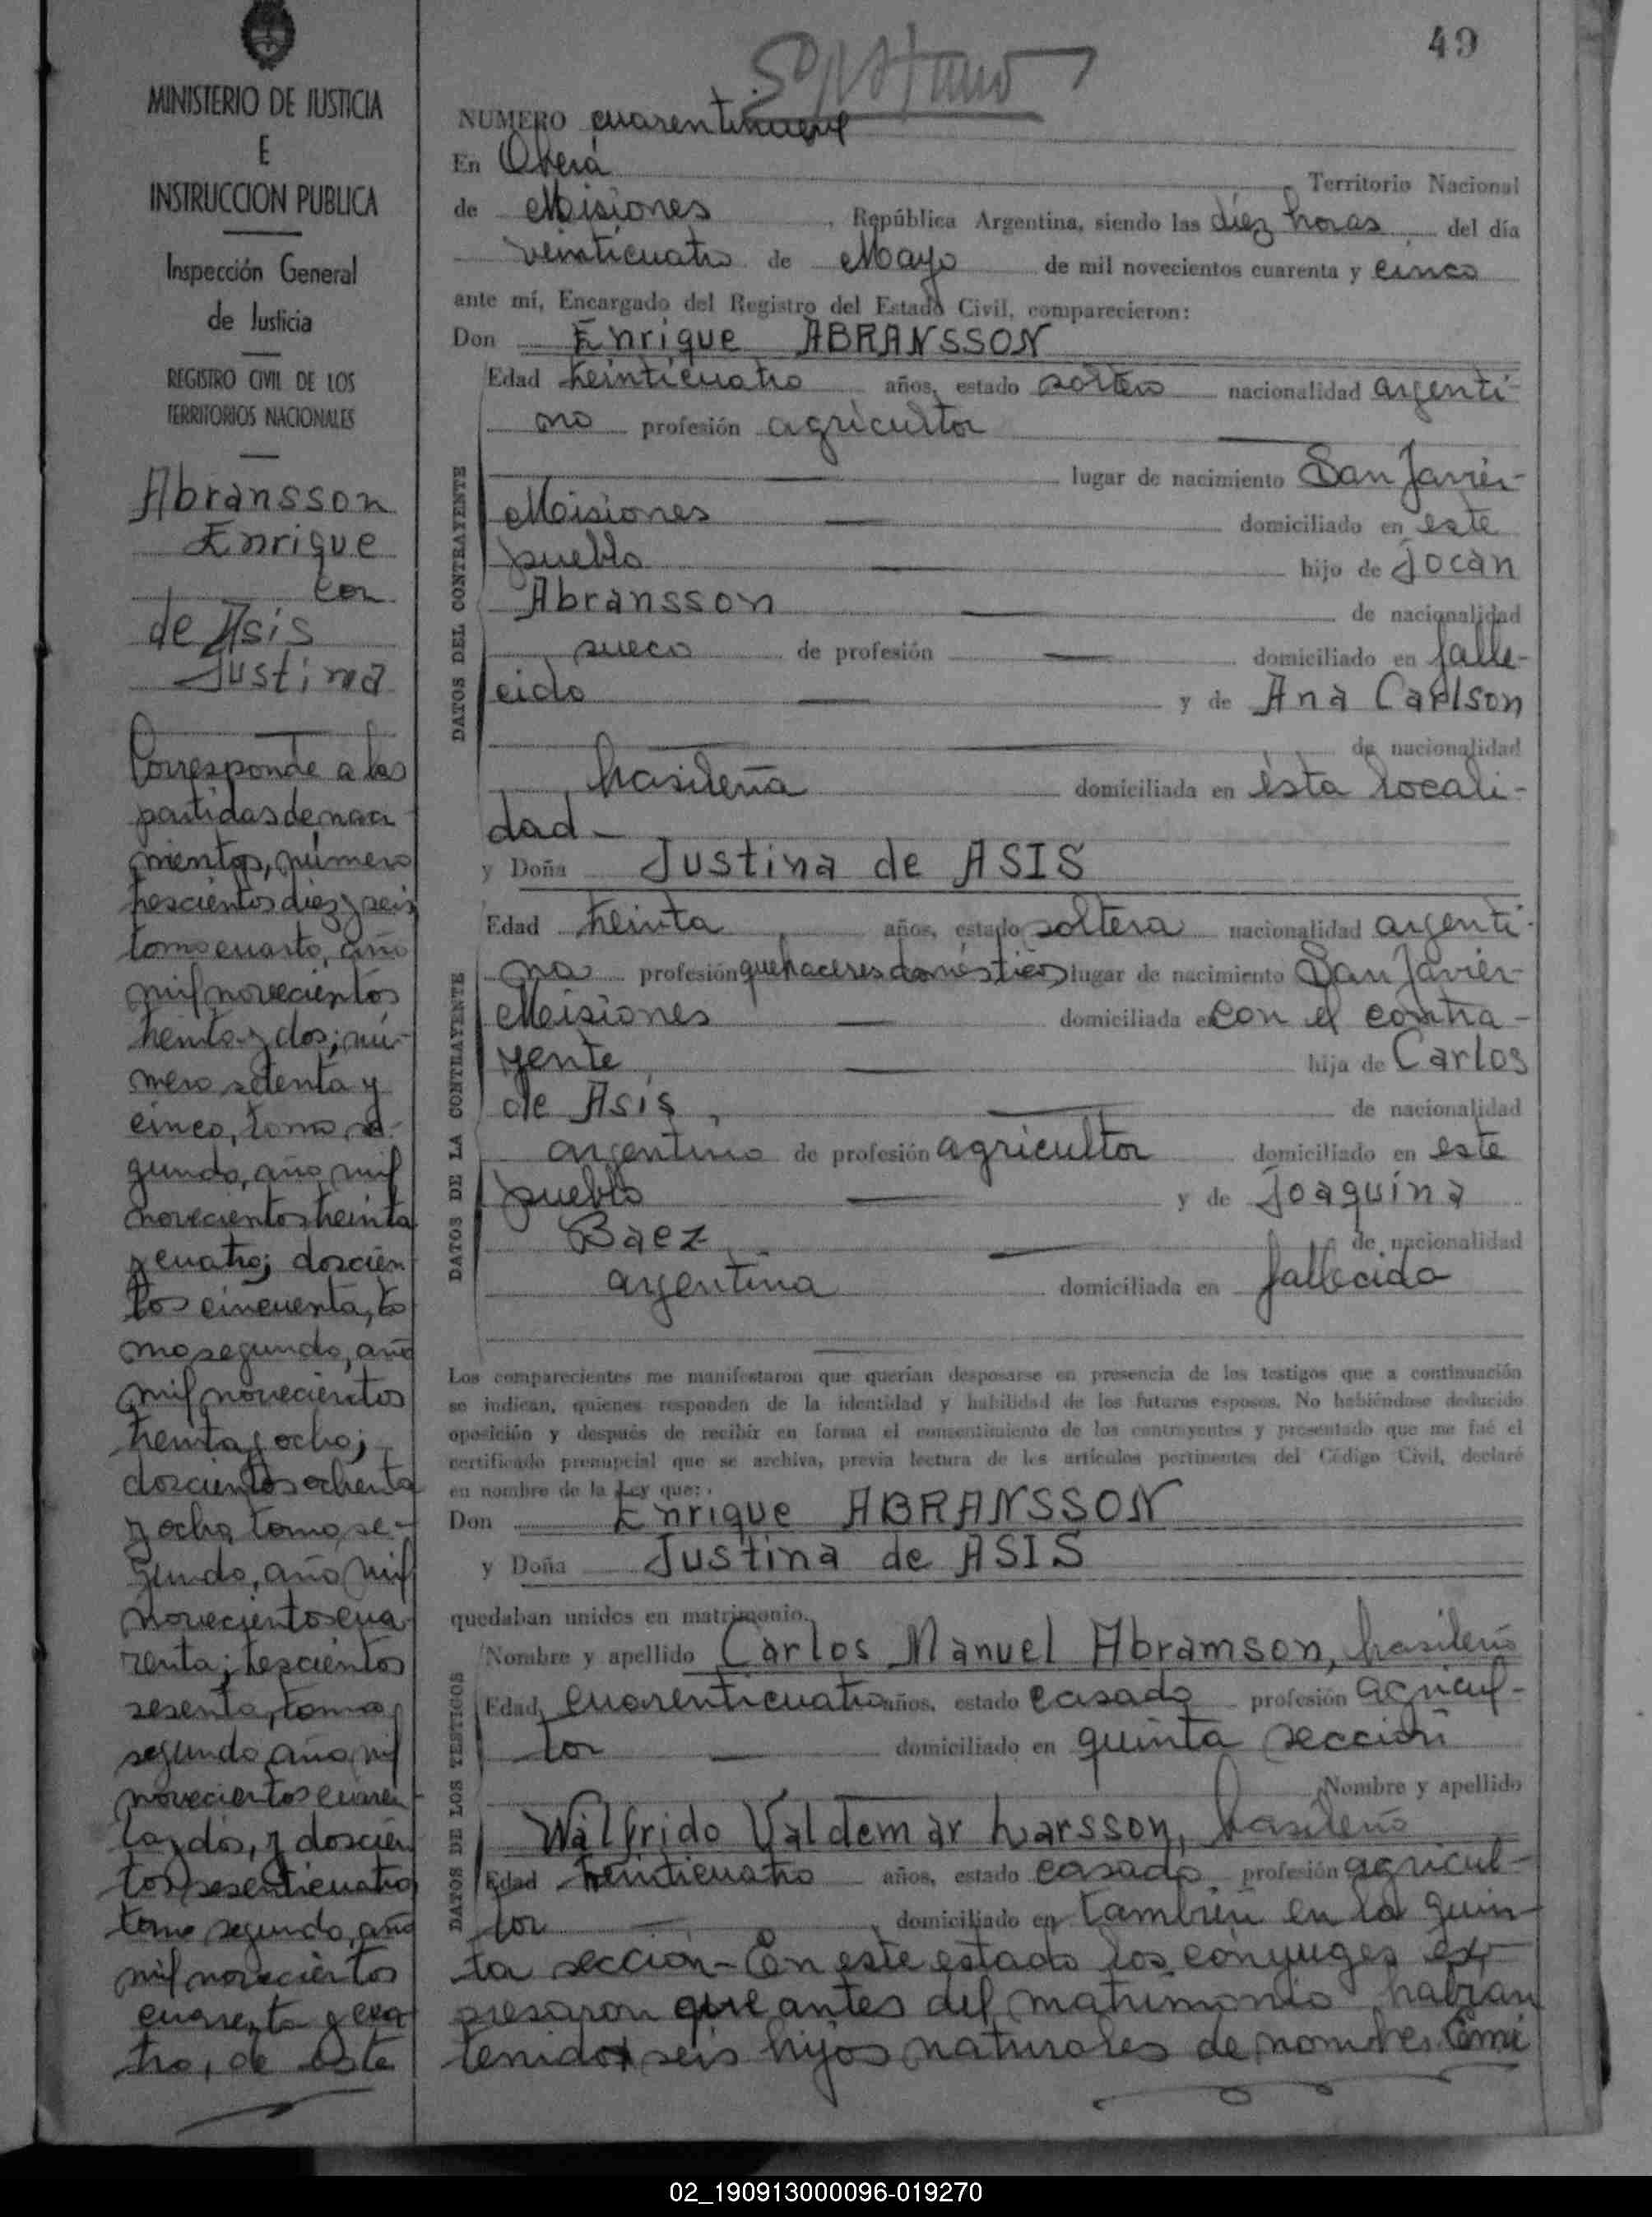 49
MINISTERIO DE JUSTICIA
E
INSTRUCCION PUBLICA
Inspección General
de Justicia
REGISTRO CIVIL DE LOS
TERRITORIOS NACIONALES
Abransson
Enrique
con
de Asis
Justina
Corresponde a las
partidas de naci
mientos, número
trescientos diez y seis
tomo cuarto, año
mil novecientos
treinta y dos; nú-
mero setenta y
cinco, tomo se-
gundo, año mil
novecientos treinta
y cuatro; doscien
tos cincuenta, to
mo segundo, año
mil novecientos
treinta y ocho;
doscientos ochenta
y ocho, tomo se-
gundo, año mil
novecientos cua-
renta; trescientos
sesenta, tomo
segundo año mil
novecientos cuaren
ta y dos, y doscien
tos sesenticuatro
tomo segundo, año
mil novecientos
cuarenta y cua
tro, de este
NUMERO cuarentinueve
En Oberá Territorio Nacional
de Misiones, República Argentina, siendo las diez horas del día
veinticuatro de Mayo de mil novecientos cuarenta y cinco
ante mí, Encargado del Registro del Estado Civil, comparecieron:
Don Enrique ABRANSSON
DATOS DEL CONTRAYENTE
Edad treinticuatro años, estado soltero nacionalidad argenti-
no profesión agricultor
lugar de nacimiento San Javier-
Misiones domiciliado en este
pueblo hijo de Jocan
Abransson de nacionalidad
sueco de profesión domiciliado en falle-
cido y de Ana Carlson
de nacionalidad
brasileña domiciliada en ésta locali-
dad-
y Doña Justina de ASIS
DATOS DE LA CONTRAYENTE
Edad treinta años, estado soltera nacionalidad argenti-
na profesión quehaceres domésticos lugar de nacimiento San Javier-
Misiones domiciliada en con el contra-
yente hija de Carlos
de Asis, de nacionalidad
argentino de profesión agricultor domiciliado en este
pueblo y de Joaquina
Baez de nacionalidad
argentina domiciliada en fallecida
Los comparecientes me manifestaron que querían desposarse en presencia de los testigos que a continuación
se indican, quienes responden de la identidad y habilidad de los futuros esposos. No habiéndose deducido
oposición y después de recibir en forma el consentimiento de los contrayentes y presentado que me fué el
certificado prenupcial que se archiva, previa lectura de los artículos pertinentes del Código Civil, declaré
en nombre de la Ley que:
Don Enrique ABRANSSON
y Doña Justina de ASIS
quedaban unidos en matrimonio.
DATOS DE LOS TESTIGOS
Nombre y apellido Carlos Manuel Abramson, brasileño
Edad cuarenticuatro años, estado casado profesión agricul-
tor domiciliado en quinta sección
Nombre y apellido
Wilfrido Valdemar Larsson, brasileño
Edad treinticuatro años, estado casado profesión agricul-
tor, domiciliado en también en la quin-
ta sección- En este estado los cónyuges ex-
presaron que antes del matrimonio habían
tenido seis hijos naturales de nombres Emi
02_190913000096-019270